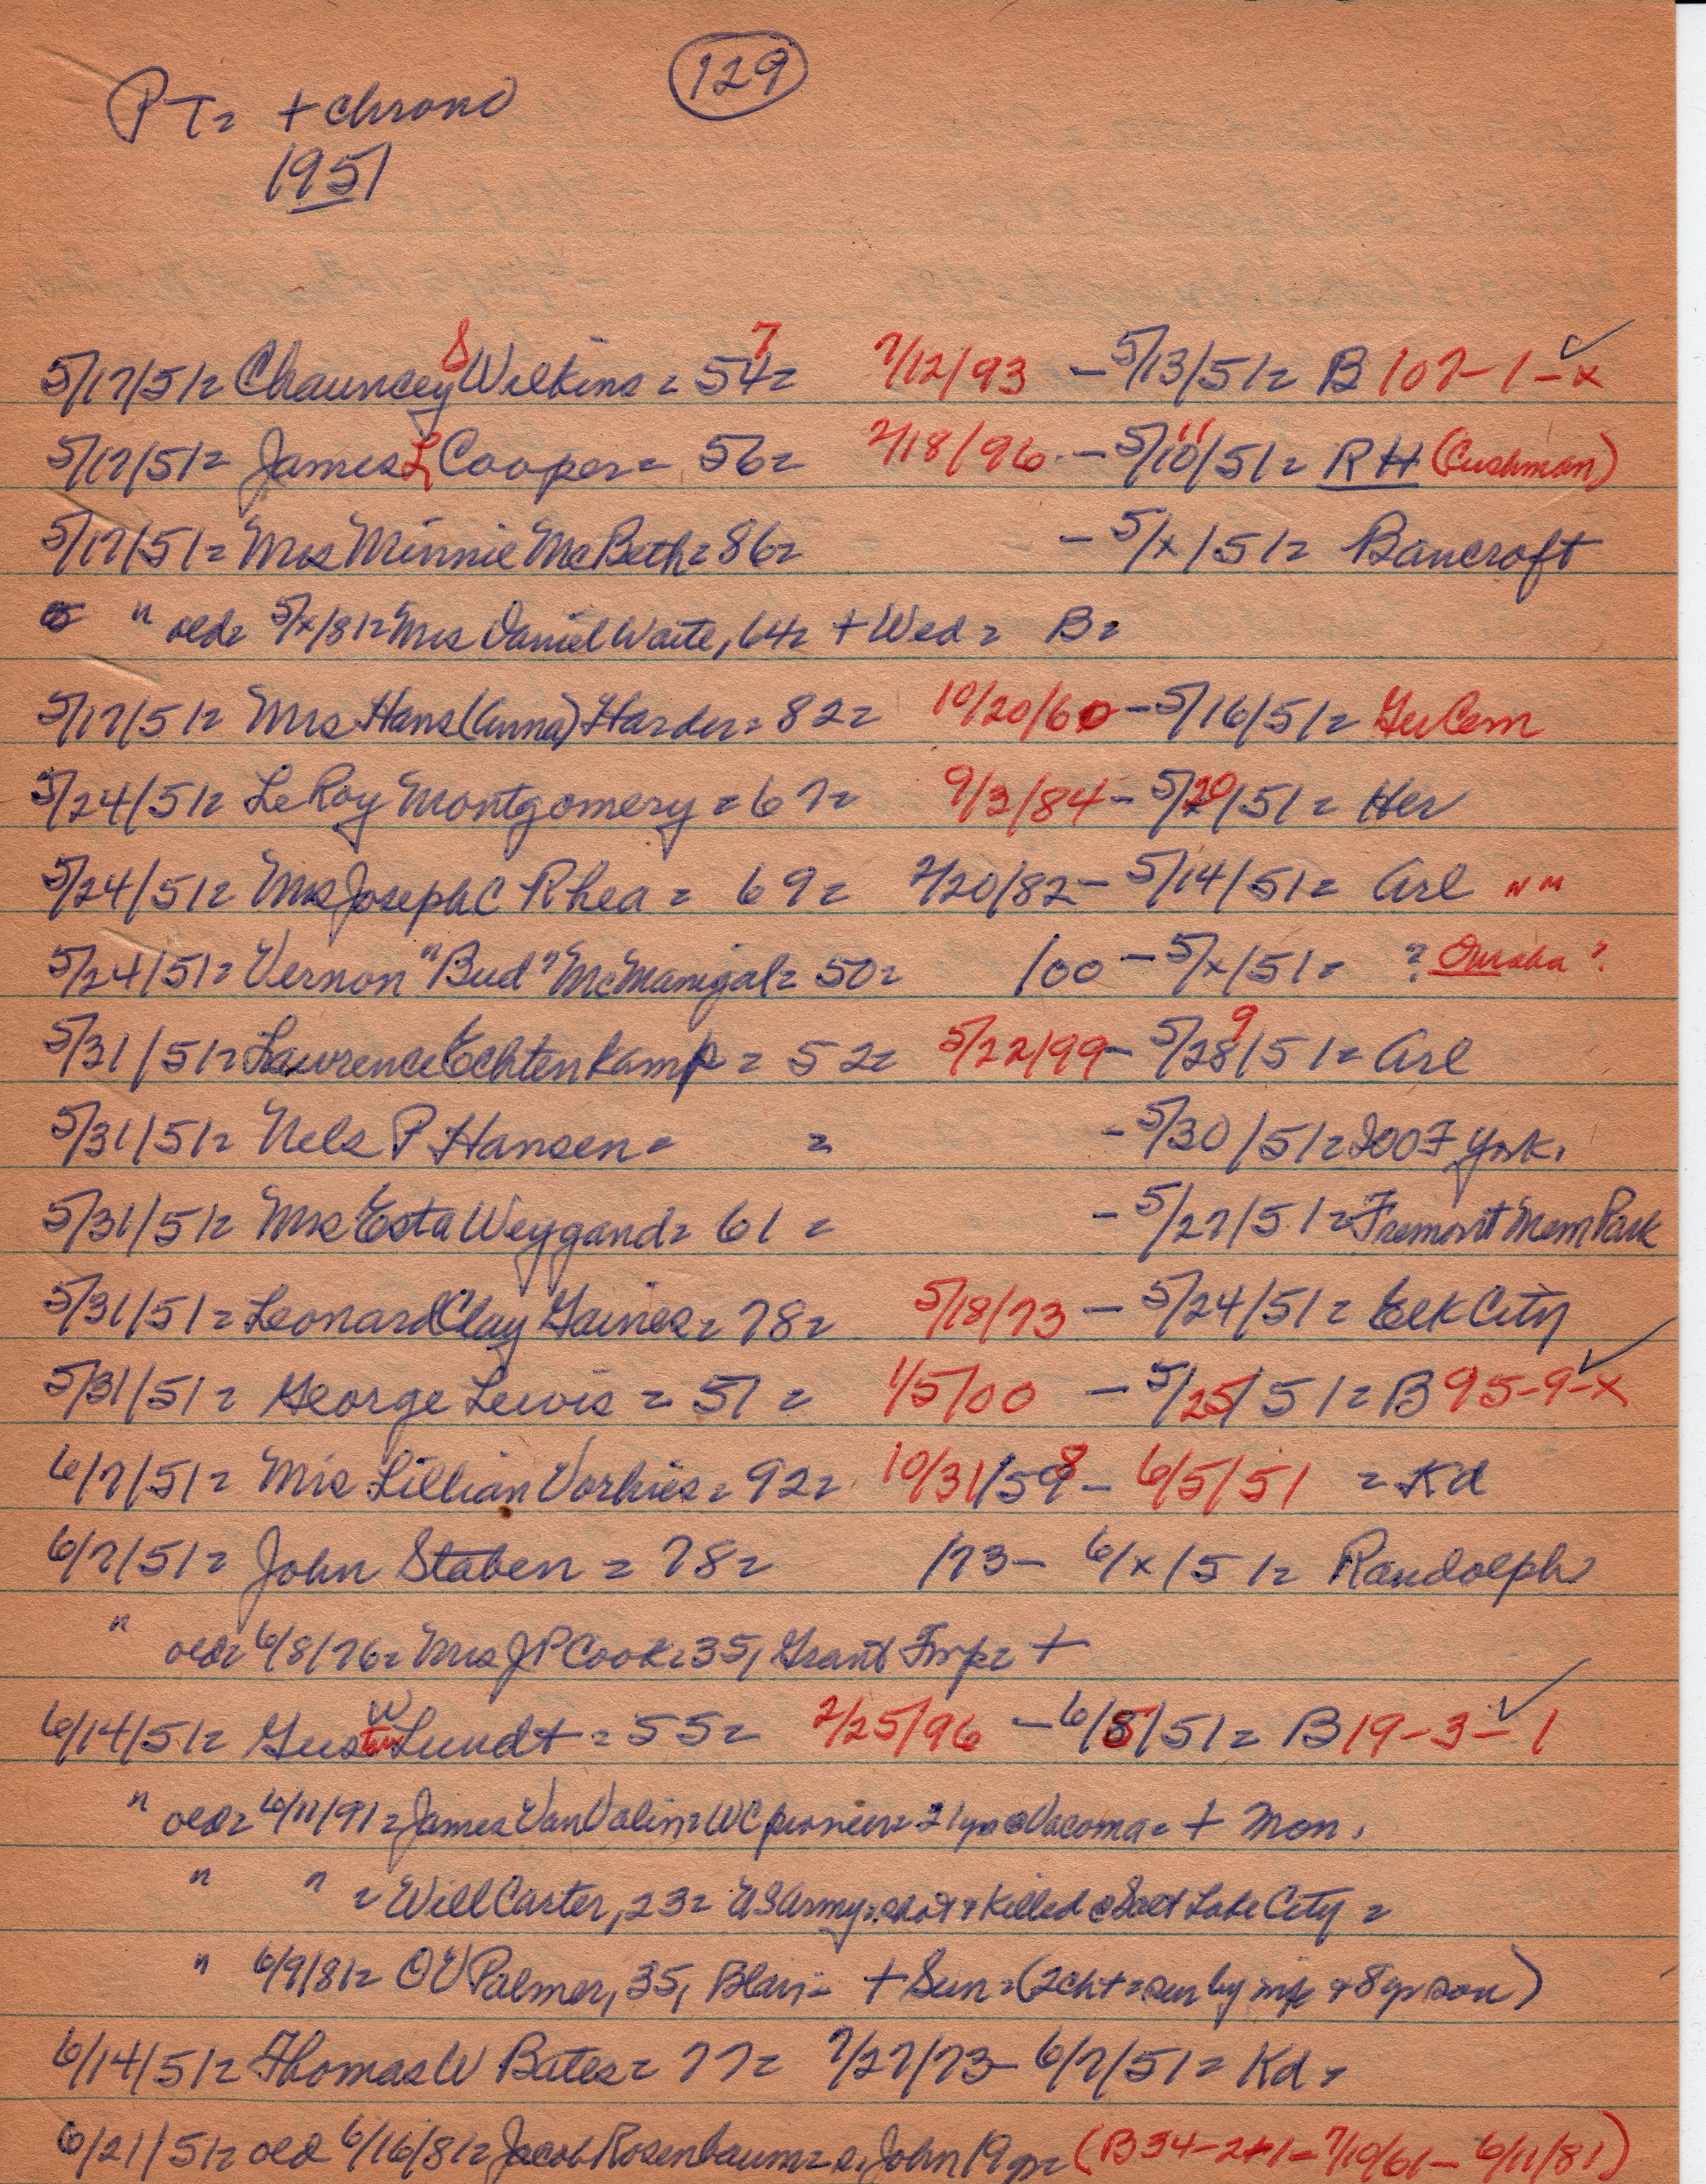 129
PT= + chrono
1951
5/17/51= Chauncey S Wilkins = 54 7= 7/12/93 - 5/13/51= B 107-1-x ✓
5/17/51= James L Cooper = 56= 2/18/96 - 5/10 11/51= RH (Cushman)
5/17/51= Mrs Minnie McBeth = 86= - 5/x/51= Bancroft
" old= 5/x/81= Mrs Daniel Waite, 64= + Wed = B=
5/17/51= Mrs Hans (Anna) Harder = 82= 10/20/60 - 5/16/51= GerCem
5/24/51= LeRoy Montgomery = 67= 9/3/84 - 5/20/51= Her
5/24/51= Mrs Joseph C Rhea = 69= 2/20/82 - 5/14/51= Arl NM
5/24/51= Vernon "Bud" McManigal = 50= /00 - 5/x/51= ? Omaha ?
5/31/51= Lawrence Echtenkamp = 52= 5/22/99 - 5/28 9/51= Arl
5/31/51= Nels P Hansen = = - 5/30/51= IOOF York.
5/31/51= Mrs Esta Weygand = 61 = - 5/27/51= Fremont Mem Park
5/31/51= Leonard Clay Gaines = 78= 5/18/73 - 5/24/51= Elk City
5/31/51= George Lewis = 51 = 1/5/00 - 5/25/51= B 95-9-x ✓
6/7/51= Mrs Lillian Vorhies = 92= 10/31/59 8 - 6/5/51 = Kd
6/7/51= John Staben = 78= /73 - 6/x/51= Randolph
" old= 6/8/76= Mrs JP Cook = 35, Grant Twp= +
6/14/51= Gustav W Lundt = 55= 2/25/96 - 6/5/51= B 19-3-1 ✓
" old= 6/11/91= James VanValin= WC pioneer= 21yrs @ Vacoma= + Mon.
" " = Will Carter, 23= US Army= shot & killed @ Salt Lake City =
" 6/9/81= OV Palmer, 35, Blair= + Sun = (2ch + = sur by wife & 8yr son)
6/14/51= Thomas W Bates = 77= 7/27/73 - 6/7/51= Kd=
6/21/51= old 6/16/81= Jacob Rosenbaum= s. John 19yr= (B34-2+1= 7/10/61 - 6/11/81)